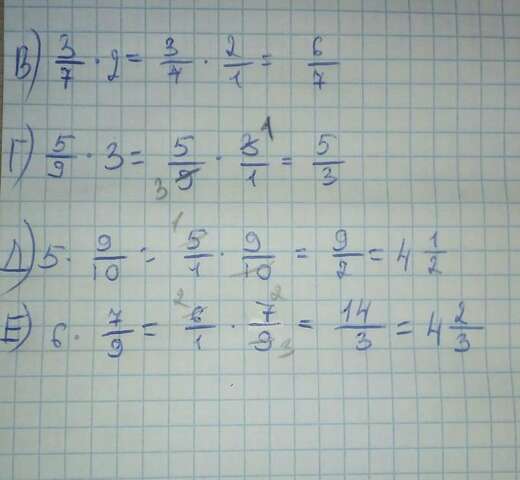 В) 3/7 · 2 = 3/7 · 2/1 = 6/7
Г) 5/9 · 3 = 5/9 3 · 3/1 1 = 5/3
Д) 5 · 9/10 = 1 5/1 · 9/10 = 9/2 = 4 1/2
Е) 6 · 7/9 = 2 6/1 · 7/9 3 = 14/3 = 4 2/3